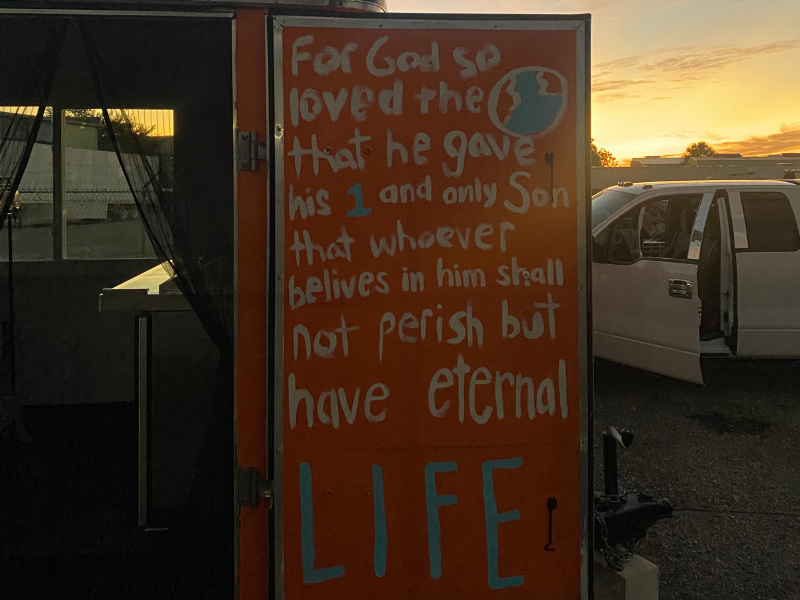 For God so
loved the
that he gave
his 1 and only Son
that whoever
belives in him shall
not perish but
have eternal
LIFE